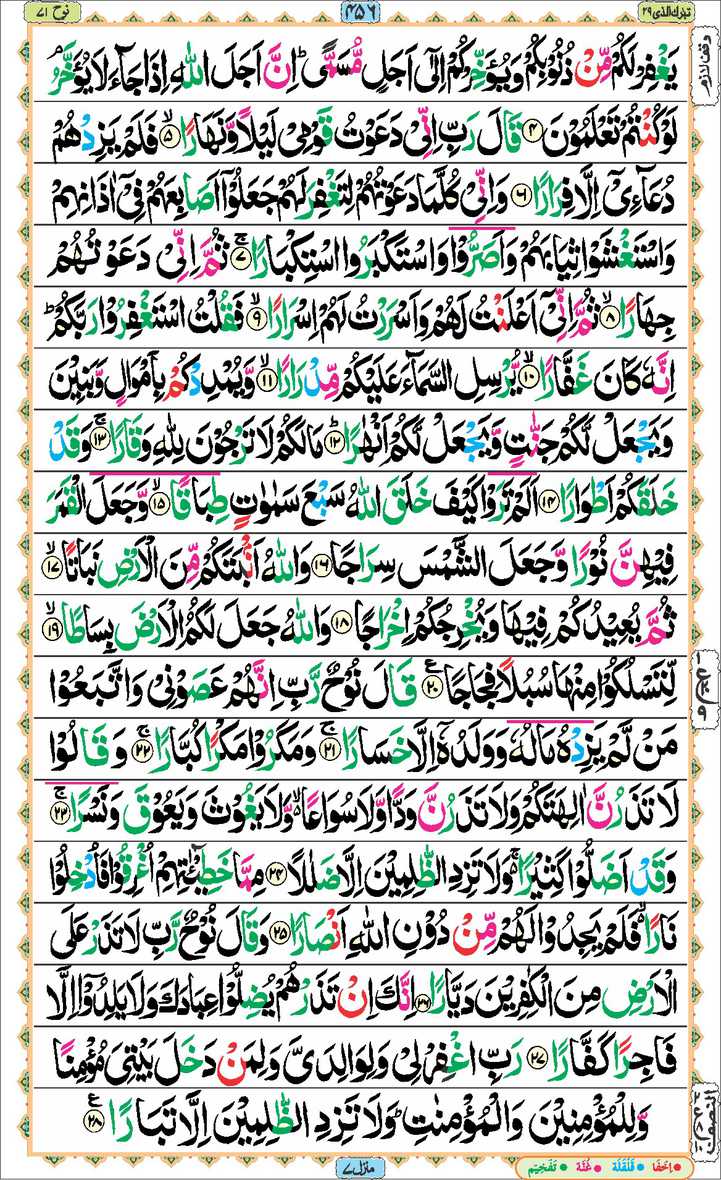 تبٰرك الذی ۲۹
۴۵۶
نوح ۷۱
وقف لازم
یَغْفِرْ لَكُمْ مِّنْ ذُنُوْبِكُمْ وَیُؤَخِّرْكُمْ اِلٰۤی اَجَلٍ مُّسَمًّی ؕ اِنَّ اَجَلَ اللّٰهِ اِذَا جَآءَ لَا یُؤَخَّرُ ۘ
لَوْ كُنْتُمْ تَعْلَمُوْنَ ﴿۴﴾ قَالَ رَبِّ اِنِّیْ دَعَوْتُ قَوْمِیْ لَیْلًا وَّنَهَارًا ﴿۵﴾ۙ فَلَمْ یَزِدْهُمْ
دُعَآءِیْۤ اِلَّا فِرَارًا ﴿۶﴾ وَاِنِّیْ كُلَّمَا دَعَوْتُهُمْ لِتَغْفِرَ لَهُمْ جَعَلُوْۤا اَصَابِعَهُمْ فِیْۤ اٰذَانِهِمْ
وَاسْتَغْشَوْا ثِیَابَهُمْ وَاَصَرُّوْا وَاسْتَكْبَرُوا اسْتِكْبَارًا ﴿۷﴾ۚ ثُمَّ اِنِّیْ دَعَوْتُهُمْ
جِهَارًا ﴿۸﴾ۙ ثُمَّ اِنِّیْۤ اَعْلَنْتُ لَهُمْ وَاَسْرَرْتُ لَهُمْ اِسْرَارًا ﴿۹﴾ۙ فَقُلْتُ اسْتَغْفِرُوْا رَبَّكُمْ ؕ
اِنَّهٗ كَانَ غَفَّارًا ﴿۱۰﴾ۙ یُّرْسِلِ السَّمَآءَ عَلَیْكُمْ مِّدْرَارًا ﴿۱۱﴾ۙ وَّیُمْدِدْكُمْ بِاَمْوَالٍ وَّبَنِیْنَ
وَیَجْعَلْ لَّكُمْ جَنّٰتٍ وَّیَجْعَلْ لَّكُمْ اَنْهٰرًا ﴿۱۲﴾ؕ مَا لَكُمْ لَا تَرْجُوْنَ لِلّٰهِ وَقَارًا ﴿۱۳﴾ۚ وَقَدْ
خَلَقَكُمْ اَطْوَارًا ﴿۱۴﴾ اَلَمْ تَرَوْا كَیْفَ خَلَقَ اللّٰهُ سَبْعَ سَمٰوٰتٍ طِبَاقًا ﴿۱۵﴾ۙ وَّجَعَلَ الْقَمَرَ
فِیْهِنَّ نُوْرًا وَّجَعَلَ الشَّمْسَ سِرَاجًا ﴿۱۶﴾ وَاللّٰهُ اَنْۢبَتَكُمْ مِّنَ الْاَرْضِ نَبَاتًا ﴿۱۷﴾ۙ
ثُمَّ یُعِیْدُكُمْ فِیْهَا وَیُخْرِجُكُمْ اِخْرَاجًا ﴿۱۸﴾ وَاللّٰهُ جَعَلَ لَكُمُ الْاَرْضَ بِسَاطًا ﴿۱۹﴾ۙ
لِّتَسْلُكُوْا مِنْهَا سُبُلًا فِجَاجًا ﴿۲۰﴾ع قَالَ نُوْحٌ رَّبِّ اِنَّهُمْ عَصَوْنِیْ وَاتَّبَعُوْا
مَنْ لَّمْ یَزِدْهُ مَالُهٗ وَوَلَدُهٗۤ اِلَّا خَسَارًا ﴿۲۱﴾ۚ وَمَكَرُوْا مَكْرًا كُبَّارًا ﴿۲۲﴾ۚ وَقَالُوْا
لَا تَذَرُنَّ اٰلِهَتَكُمْ وَلَا تَذَرُنَّ وَدًّا وَّلَا سُوَاعًا ۙ۬ وَّلَا یَغُوْثَ وَیَعُوْقَ وَنَسْرًا ﴿۲۳﴾ۚ
وَقَدْ اَضَلُّوْا كَثِیْرًا ۚ۬ وَلَا تَزِدِ الظّٰلِمِیْنَ اِلَّا ضَلٰلًا ﴿۲۴﴾ مِمَّا خَطِیْٓئٰتِهِمْ اُغْرِقُوْا فَاُدْخِلُوْا
نَارًا ۙ۬ فَلَمْ یَجِدُوْا لَهُمْ مِّنْ دُوْنِ اللّٰهِ اَنْصَارًا ﴿۲۵﴾ وَقَالَ نُوْحٌ رَّبِّ لَا تَذَرْ عَلَی
الْاَرْضِ مِنَ الْكٰفِرِیْنَ دَیَّارًا ﴿۲۶﴾ اِنَّكَ اِنْ تَذَرْهُمْ یُضِلُّوْا عِبَادَكَ وَلَا یَلِدُوْۤا اِلَّا
فَاجِرًا كَفَّارًا ﴿۲۷﴾ رَبِّ اغْفِرْ لِیْ وَلِوَالِدَیَّ وَلِمَنْ دَخَلَ بَیْتِیَ مُؤْمِنًا
وَّلِلْمُؤْمِنِیْنَ وَالْمُؤْمِنٰتِ ؕ وَلَا تَزِدِ الظّٰلِمِیْنَ اِلَّا تَبَارًا ﴿۲۸﴾ع
النصف
منزل ۷
اِخفَا قَلْقَلَه غُنَّه تَفْخِیْم